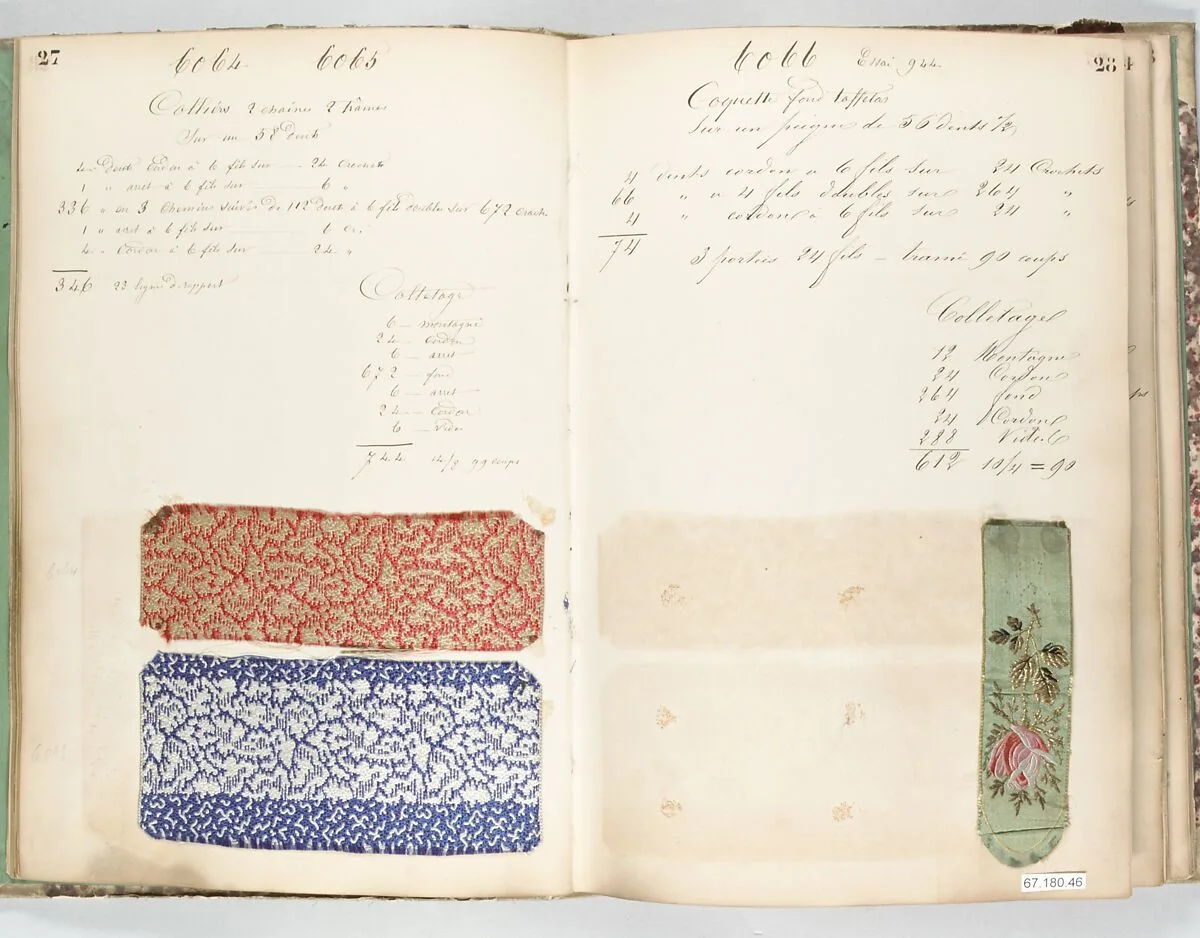 27
6064 6065
Colliers 2 chaînes 2 trâmes
Sur un 58 Dents
4 Dents Cordon à 6 fils sur 24 Crochets
1 " arret à 6 fils sur 6 "
336 " en 3 Chemins suivis de 112 Dents à 6 fils doubles sur 672 Crochets
1 " arret à 6 fils sur 6
4 " Cordon à 6 fils sur 24 "
346 23 lignes de rapport
Colletage
6 — montagne
24 — cordon
6 — arret
672 — fond
6 — arret
24 — Cordon
6 — Vides
744 99 coups
6064
28
6066 Essai 944
Coquette fond taffetas
Sur un peigne de 56 dents 1/2
4 dents cordon à 6 fils sur 24 Crochets
66 " à 4 fils doubles sur 264 "
4 " cordon à 6 fils sur 24 "
74
3 portées 24 fils — tramé 90 coups
Colletage
12 Montagne
24 Cordon
264 fond
24 Cordon
288 Vides
612 10/4 = 90
67.180.46